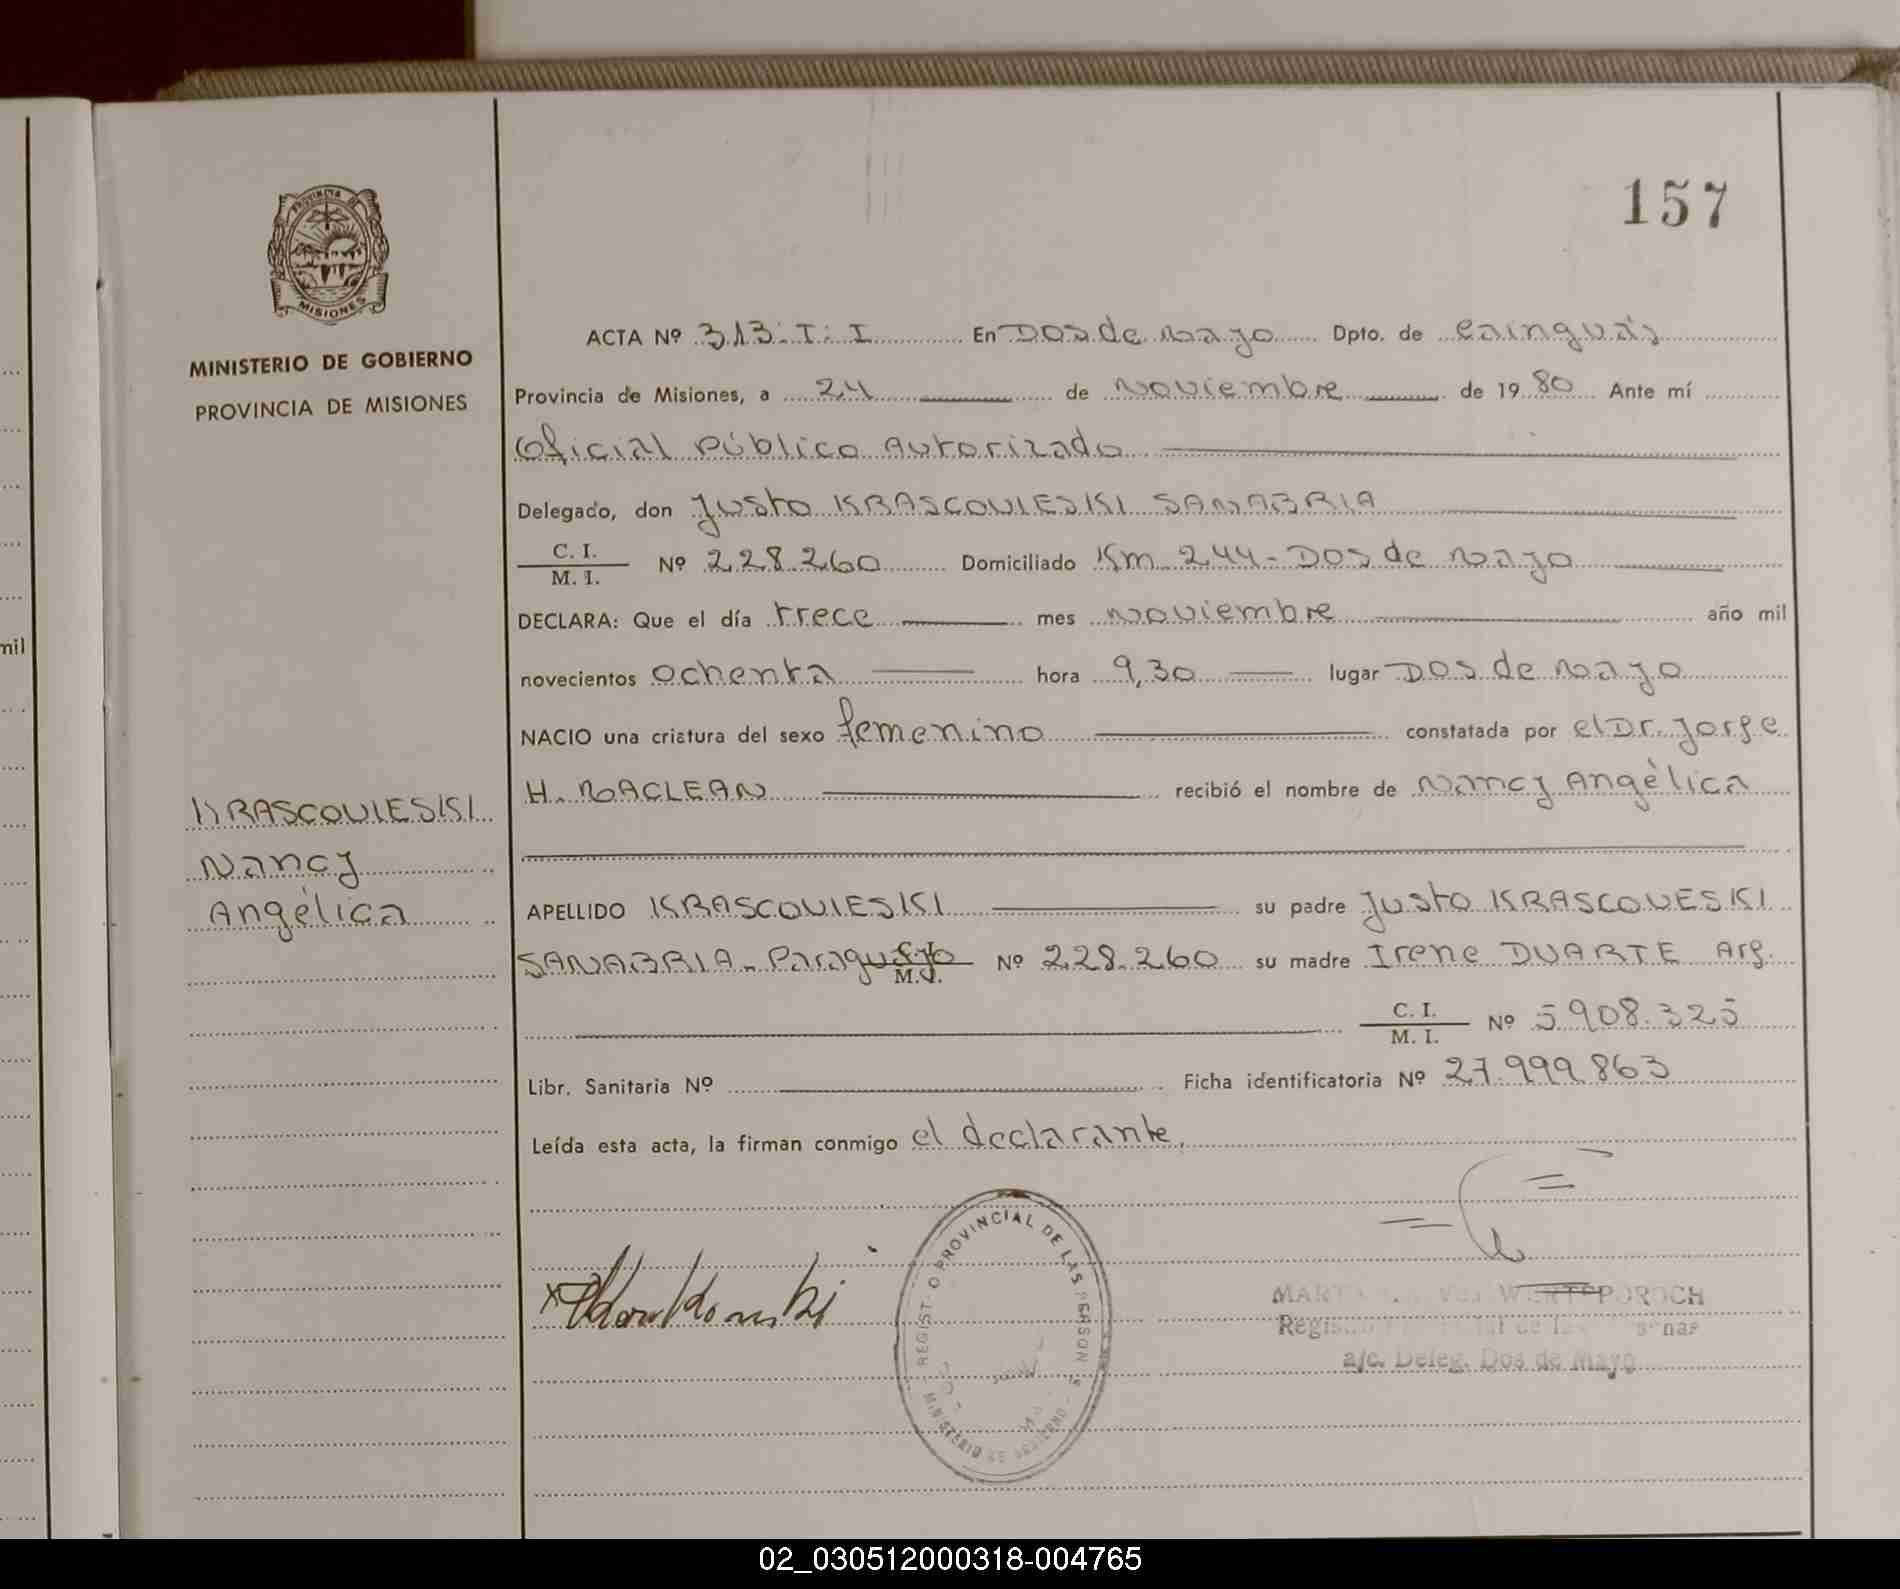 157
PROVINCIA DE
MISIONES
MINISTERIO DE GOBIERNO
PROVINCIA DE MISIONES
ACTA Nº 313. T: I En Dos de Mayo Dpto. de Cainguás
Provincia de Misiones, a 24 de Noviembre de 1980 Ante mí
Oficial Público Autorizado
Delegado, don Justo KRASCOVIESKI SANABRIA
C. I.
M. I. Nº 228.260 Domiciliado Km 244 - Dos de Mayo
DECLARA: Que el día trece mes Noviembre año mil
novecientos ochenta hora 9,30 lugar Dos de Mayo
NACIO una criatura del sexo femenino constatada por el Dr. Jorge
H. MACLEAN recibió el nombre de Nancy Angélica
APELLIDO KRASCOVIESKI su padre Justo KRASCOVESKI
SANABRIA - Paraguayo M. I. Nº 228.260 su madre Irene DUARTE Arg.
C. I.
M. I. Nº 5908.325
Libr. Sanitaria Nº Ficha identificatoria Nº 27.999.863
Leída esta acta, la firman conmigo el declarante.
KRASCOVIESKI
Nancy
Angélica
mil
REGIST O PROVINCIAL DE LAS PERSON S
MINISTERIO DE GOBIERNO
a/c. Deleg. Dos de Mayo
02_030512000318-004765